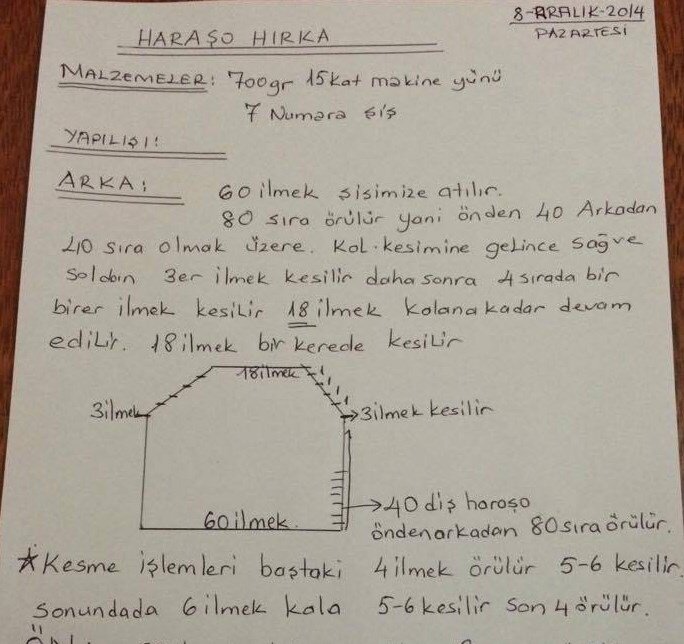 8-ARALIK-2014
PAZARTESİ
HARAŞO HIRKA
MALZEMELER: 700gr 15Kat makine yünü
7 Numara şiş
YAPILIŞI:
ARKA: 60 ilmek şişimize atılır.
80 sıra örülür yani önden 40 Arkadan
40 sıra olmak üzere. Kol.kesimine gelince sağve
Soldan 3er ilmek kesilir daha sonra 4 sırada bir
birer ilmek kesilir 18 ilmek kalana kadar devam
edilir. 18 ilmek bir kerede kesilir
18 ilmek
3ilmek
3ilmek kesilir
40 diş haroşo
60 ilmek.
önden arkadan 80 sıra örülür.
*Kesme işlemleri baştaki 4 ilmek örülür 5-6 kesilir.
Sonundada 6 ilmek kala 5-6 kesilir son 4 örülür.